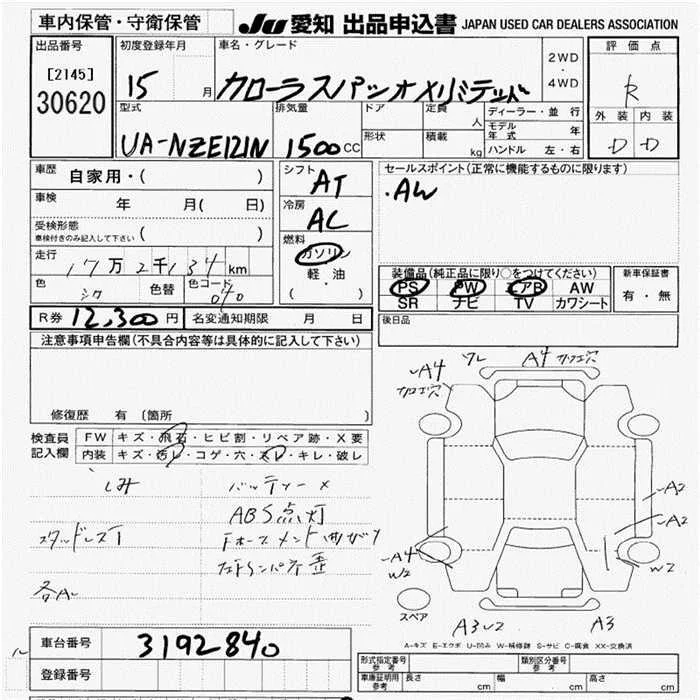 車内保管・守衛保管 JU 愛知 出品申込書 JAPAN USED CAR DEALERS ASSOCIATION
出品番号 初度登録年月 車名・グレード 2WD・4WD 評価点
[2145]
30620 15 月 カローラスパシオ Xリミテッド R
外装 内装
D D
型式 排気量 ドア 定員 人 ディーラー・並行
UA-NZE121N 1500 CC 形状 積載 kg モデル年式 年
ハンドル 左・右
車歴 自家用・( )
シフト AT
セールスポイント(正常に機能するものに限ります)
・AW
車検 年 月( 日)
冷房 AC
受検形態 車検付きのみ記入して下さい ( )
燃料 ガソリン 軽・油 ( )
走行 17万2千134km
色 シロ 色替 色コード 040
装備品(純正品に限り○をつけてください) 新車保証書
PS PW エアB AW 有・無
SR ナビ TV カワシート
R券 12,300円 名変通知期限 月 日
後日品
注意事項申告欄(不具合内容等は具体的に記入して下さい)
修復歴 有 (箇所 )
検査員記入欄 FW キズ・飛石・ヒビ割・リペア跡・X要
内装 キズ・汚レ・コゲ・穴・スレ・キレ・破レ
シミ バッテリー×
ABS点灯
スタッドレス
各A
ワレ A4 カナエ穴
A4
A2
A2
A4
W2 W2
スペア
A3 A3
A-キズ E-エクボ U-凹み W-補修跡 S-サビ C-腐食 XX-交換済
車台番号 3192840
登録番号
形式指定番号 参考 類別区分番号 参考
車庫証明用 参考 長さ cm 幅 cm 高さ cm